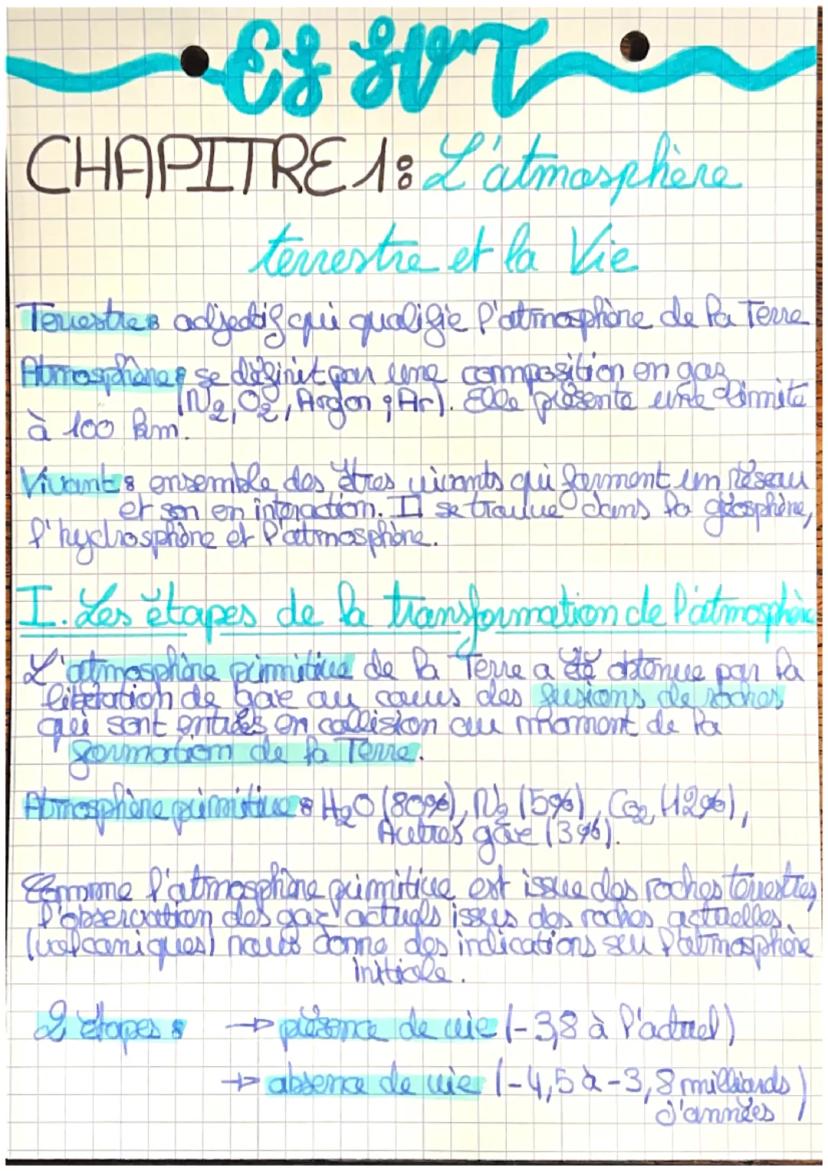 ES SVT
CHAPITRE 1: L'atmosphère
terrestre et la Vie
Terrestre: adjectif qui qualifie l'atmosphère de la Terre
Atmosphère: se définit par une composition en gaz
(N2, O2, Argon ; Ar). Elle présente une limite
à 100 km.
Vivant: ensemble des êtres vivants qui forment un réseau
et son en interaction. Il se trouve dans la géosphère,
l'hydrosphère et l'atmosphère.
I. Les étapes de la transformation de l'atmosphère
L'atmosphère primitive de la Terre a été obtenue par la
libération de gaz au cours des fusions de roches
qui sont entrées en collision au moment de la
formation de la Terre.
Atmosphère primitive: H2O (80%), N2 (5%), CO2 (12%),
Autres gaz (3%).
Comme l'atmosphère primitive est issue des roches terrestres,
l'observation des gaz actuels issus des roches actuelles
(volcaniques) nous donne des indications sur l'atmosphère
initiale.
2 étapes: → présence de vie (-3,8 à l'actuel)
→ absence de vie (-4,5 à -3,8 milliards
d'années)